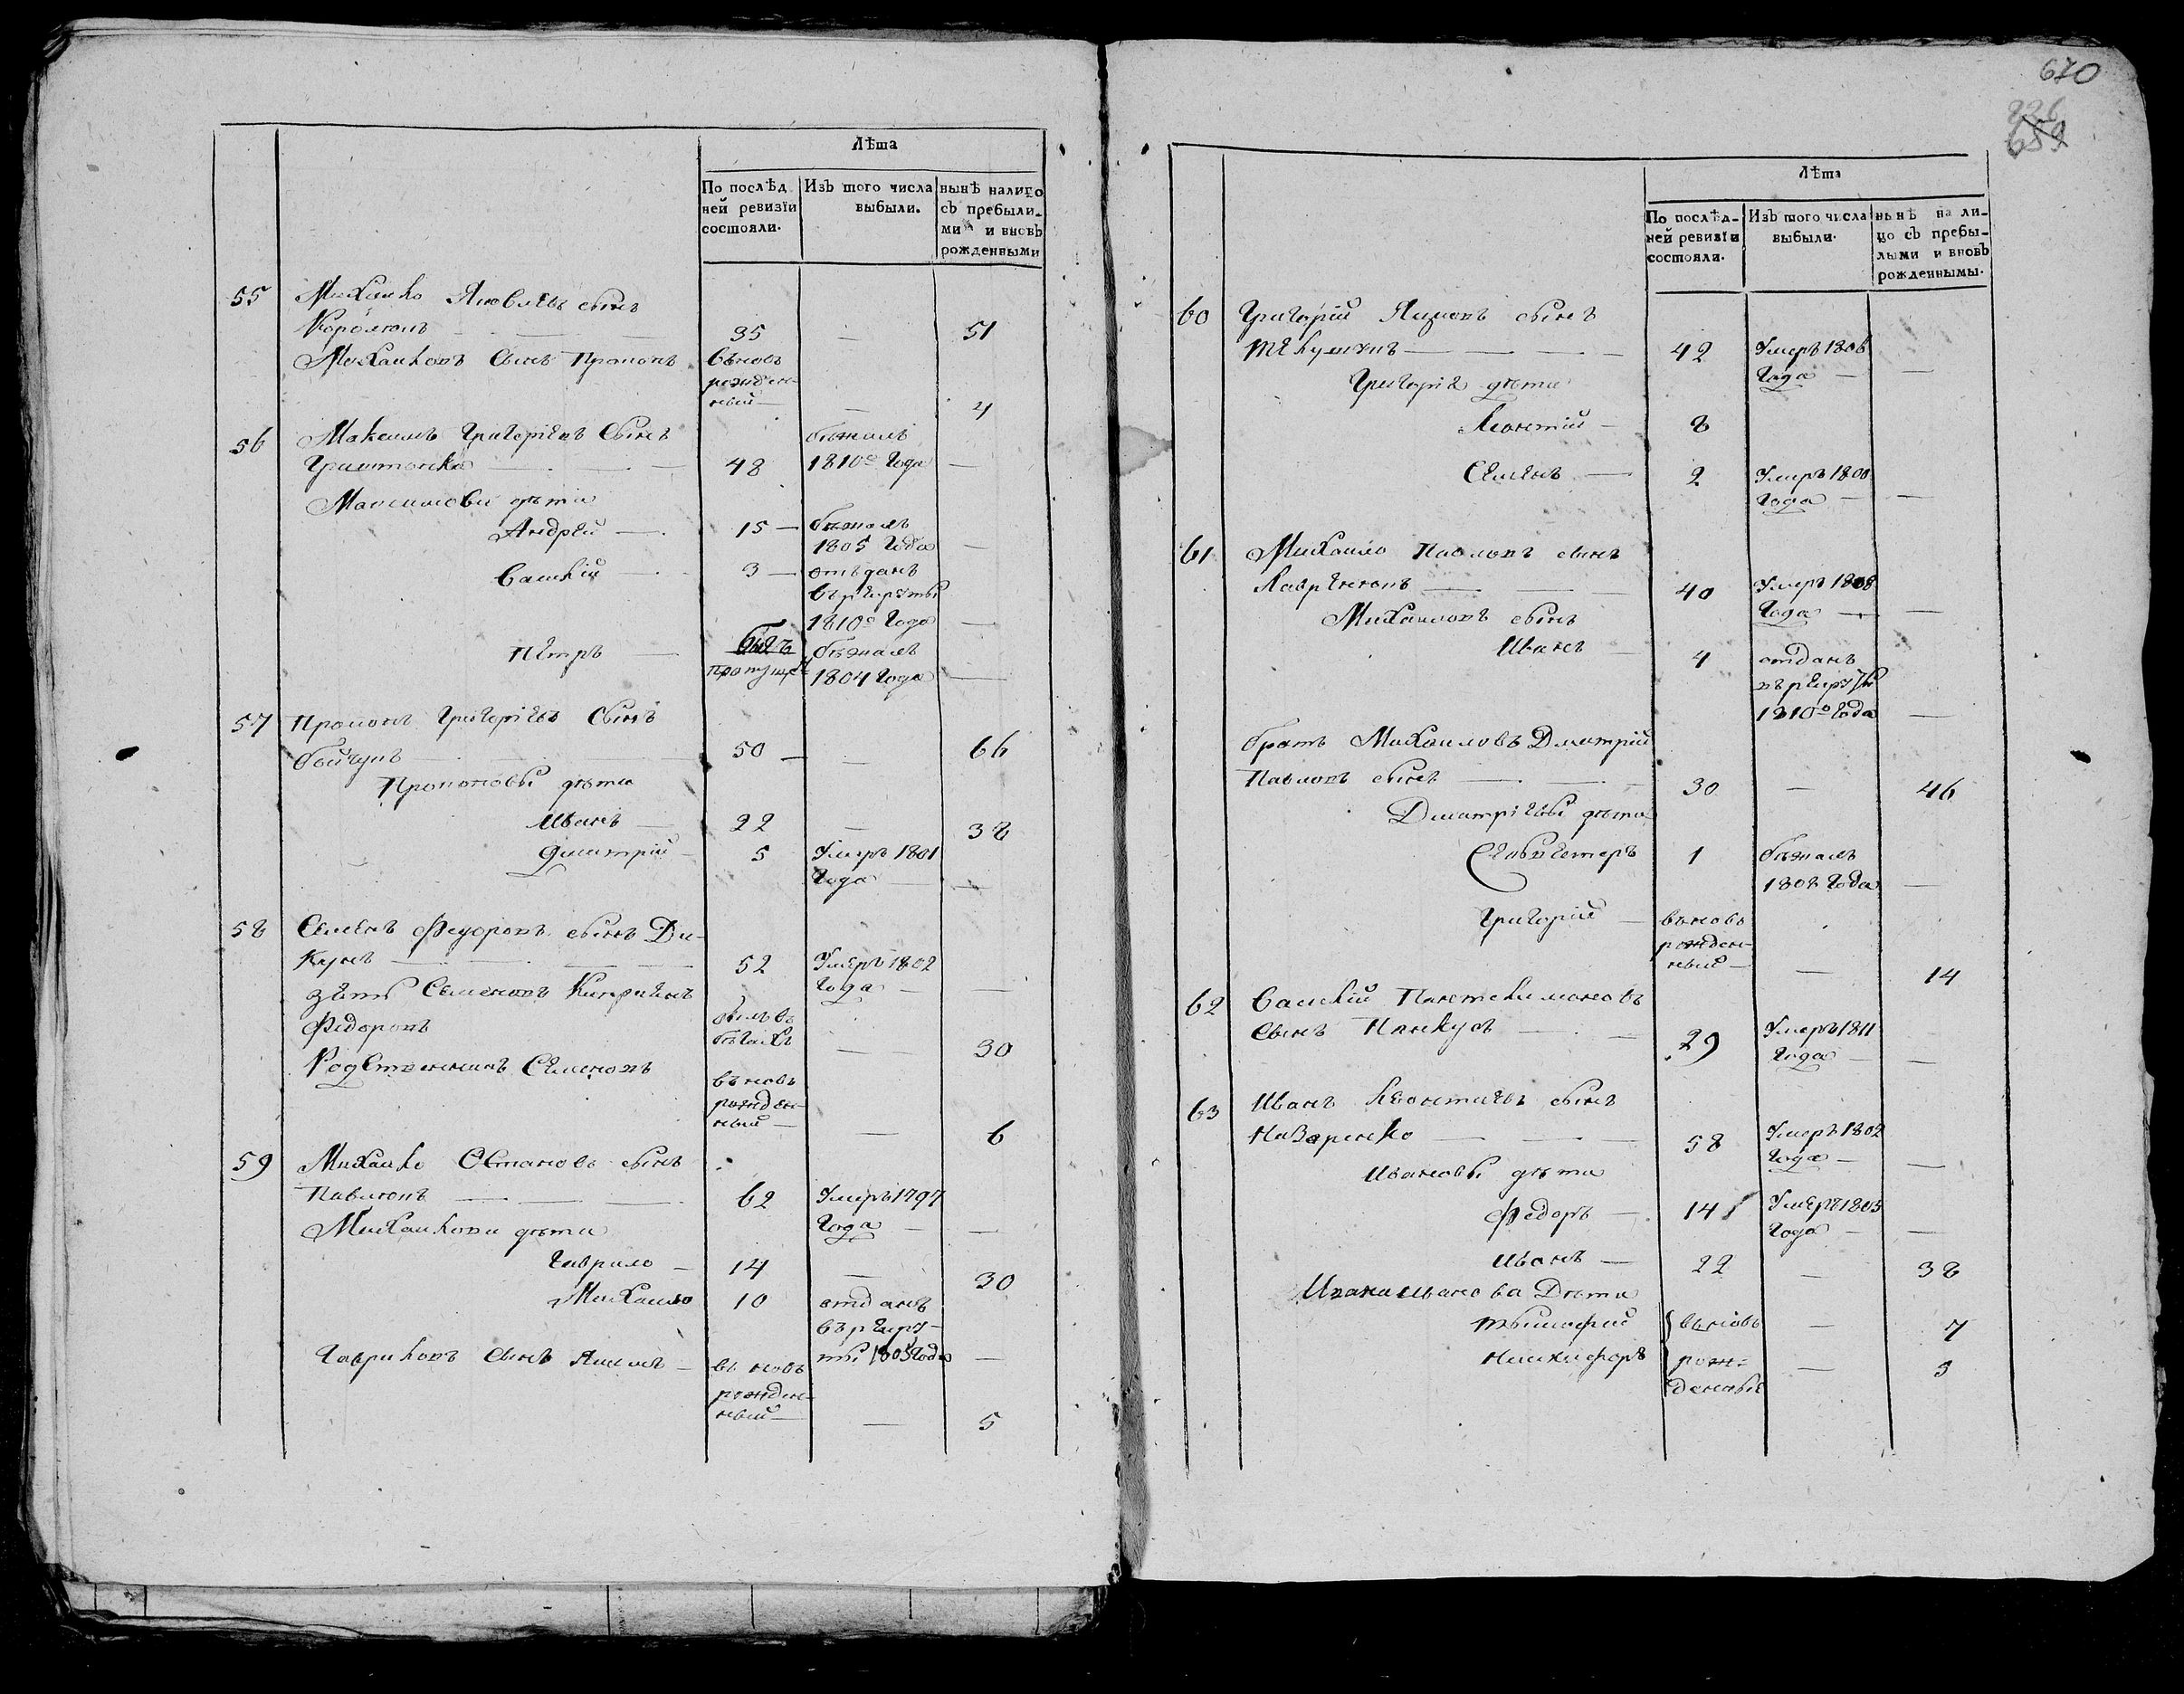 Лѣта
По послѣд
ней ревизіи
состояли.
Изъ того числа
выбыли.
нынѣ налицо
съ пребыли-
ми и вновь
рожденными
55 Михайло Яковлевъ сынъ
Корольовъ — — 35 — 51
Михайловъ сынъ Прокопъ вьновь
рожден-
ный — — 4
56 Максимъ Григоріевъ сынъ бѣжалъ
48 1810го года —
Максимови дѣти
Андрей — 15 — бѣжалъ
1805 года —
Василій — 3 — отъданъ
въ рекруты
1810го года —
Петръ — бѣжалъ
пропущен 1804 года —
57 Прокопъ Григоріевъ сынъ
50 — — 66
Прокоповы дѣти
Иванъ — 22 — 38
Дмитрій — 5 Умеръ 1801
года — —
58 Семенъ Федоровъ сынъ Ди-
кунъ — — 52 Умеръ 1802
года — —
зѣть Семеновъ
Федоровъ былъ въ
бѣгахъ — 30
Семеновъ вьновь
рожден-
ный — — 6
59 Михайло Остаповъ сынъ
Павловъ — — 62 Умеръ 1797
года — —
Михайлови дѣти
Гаврило — 14 — 30
Михайло 10 отданъ
въ рекру-
ты 1805 года —
Гавриловъ сынъ Якимъ — вьновь
рожден-
ный — — 5
670
226
659
Лѣта
По послѣд-
ней ревизіи
состояли.
Изъ того числа
выбыли.
нынѣ на ли-
цо съ пребы-
лыми и вновь
рожденнымы.
60 Григорій сынъ
— — 42 Умеръ 1806
года — —
дѣти
Леонтій — 8
Семенъ — 2 Умеръ 1800
года — —
61 Михайло Павловъ сынъ
— — 40 Умеръ 1808
года — —
Михайловъ сынъ
Иванъ — 4 отданъ
въ рекруты
1810го года —
братъ Михайловъ Дмитрій
Павловъ сынъ — — 30 — 46
Дмитріевы дѣти
1 бѣжалъ
1808 года —
Григорій — вьновь
рожден-
ный — — 14
62 Василій
сынъ — — 29 Умеръ 1811
года — —
63 Иванъ Леонтіевъ сынъ
Назаренко — — 58 Умеръ 1802
года — —
Ивановы дѣти
Федоръ — 14 Умеръ 1803
года — —
Иванъ — 22 — 38
Ивана Иванова дѣти
Тимофей вьновь — 7
Никифоръ рож- — 3
денные